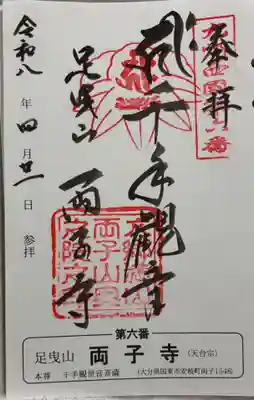 奉拝
千手観音
足曳山
両子寺
令和八年四月廿一日 参拝
第六番
足曳山 両子寺 (天台宗)
本尊 千手観世音菩薩 (大分県国東市安岐町両子1548)